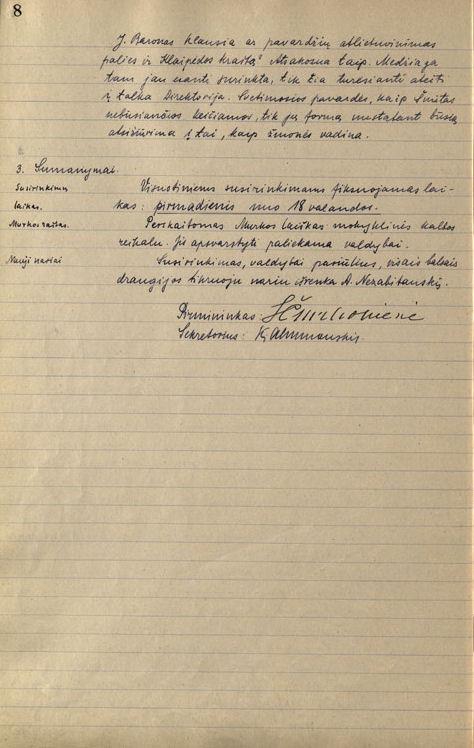 8
J. Baronas klausia ar pavardžių atlietuvinimas
palies ir Klaipėdos kraštą? Atsakoma taip. Medžiaga
tam jau esanti surinkta, tik čia turėsianti ateiti
į talką Direktorija. Svetimosios pavardės, kaip Šmitas
nebūsiančios keičiamos, tik jų formą nustatant būsią
atsižiūrima į tai, kaip žmonės vadina.
3. Sumanymai.
Susirinkimų laikas.
Visuotiniems susirinkimams fiksuojamas lai-
kas: pirmadienis nuo 18 valandos.
Murkos raštas.
Perskaitomas Murkos laiškas mokyklinės kalbos
reikalu. Jis apsvarstyti paliekama valdybai.
Nauji nariai
Susirinkimas, valdybai pasiūlius, visais balsais
draugijos tikruoju nariu išrenka A. Nezabitauskį.
Pirmininkas:
Sekretorius: